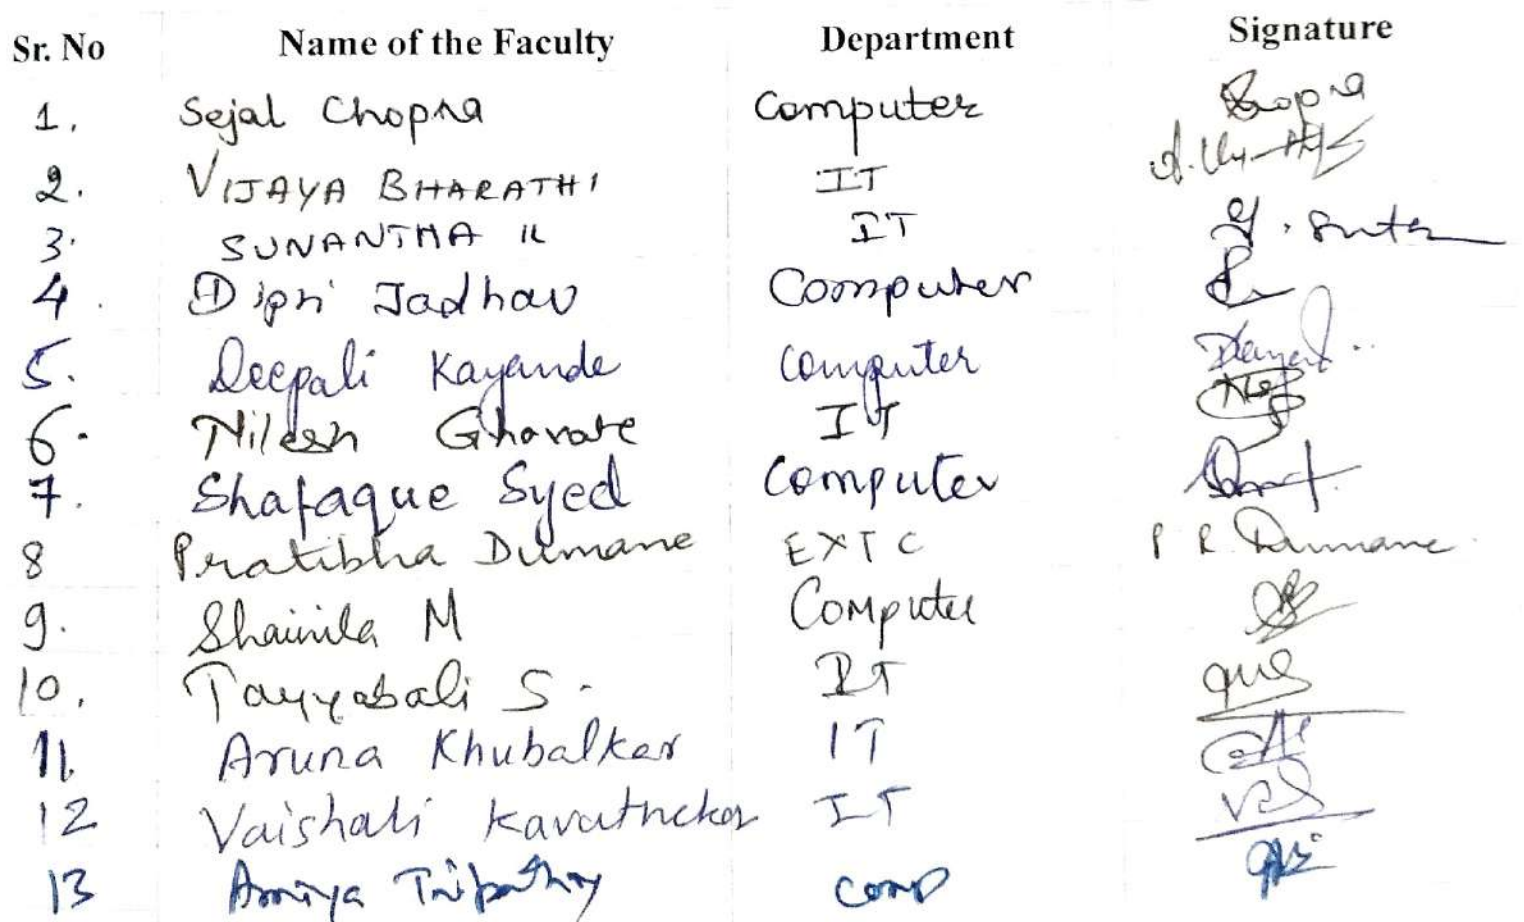 Sr. No Name of the Faculty Department Signature
1. Sejal Chopra Computer Chopra
2. VIJAYA BHARATHI IT
3. SUNANTHA K IT
4. Dipti Jadhav Computer
5. Deepali Kayande Computer
6. Nilesh Gharate IT
7. Shafaque Syed Computer
8 Pratibha Dumane EXTC P R Dumane
9. Shainila M Computer
10. Tayyabali S. IT
11. Aruna Khubalkar IT
12 Vaishali Kavathekar IT
13 Amiya Tripathy comp